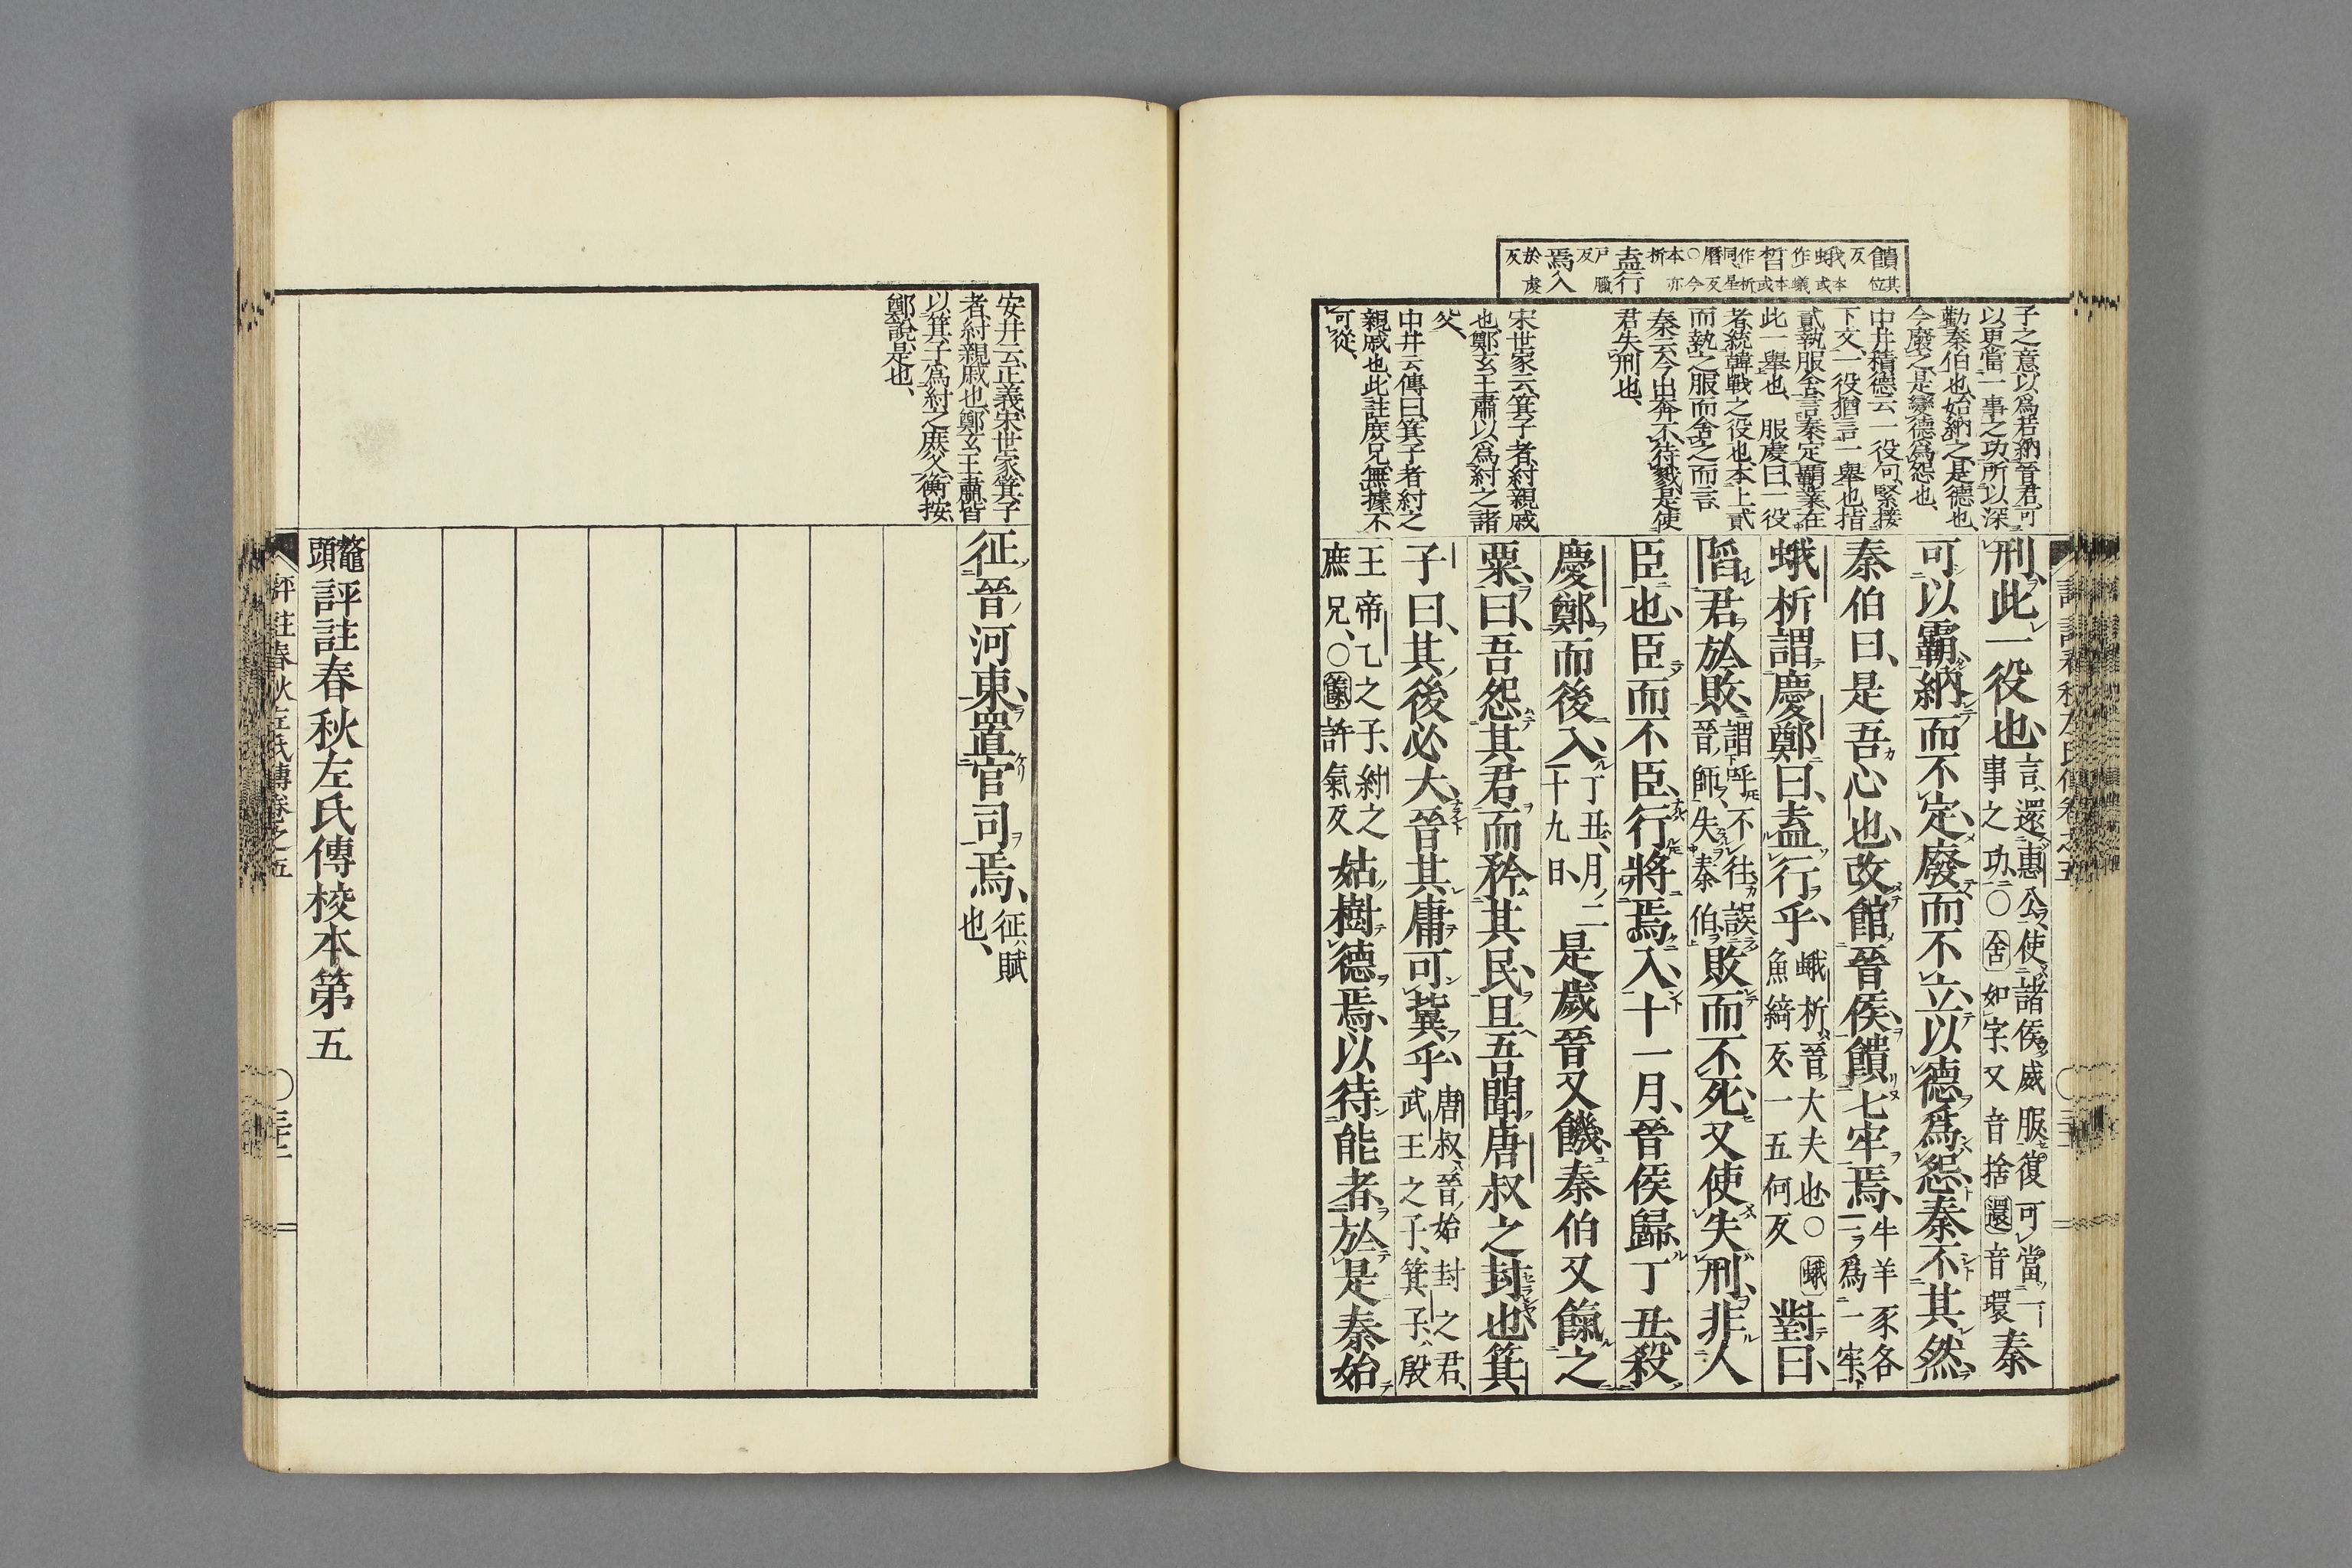 饋其位反
蛾我本或作蟻
晳本或作析同星曆反〇今本亦析
盍行戶臘反
焉入於虔反
子之意以爲若納晉君可
以更當一事之功所以深
勤秦伯也始納之是德也、
今廢之是變德爲怨也、
中井積德云一役句緊接
下文一役猶言一舉也指
貳執服舍言秦定霸業在
此一舉也、服虔曰一役
者統韓戰之役也本上貳
而執之服而舍之而言、
秦云今出奔不待戮是使
君失刑也、
宋世家云箕子者紂親戚
也鄭玄王肅以爲紂之諸
父、
中井云傳曰箕子者紂之
親戚也此註庶兄無據不
可從、
刑、此一役也、言還惠公使諸侯威服復可當一事之功、〇舍如字、又音捨還音環秦
可以霸納而不定、廢而不立、以德爲怨、秦不其然、
秦伯曰、是吾心也、改館晉侯、饋七牢焉、牛羊豕各一爲一牢、
蛾析謂慶鄭曰、盍行乎、蛾析、晉大夫也、〇蛾魚綺反、一五何反對曰、
陷君於敗、謂呼不往、誤晉師、失秦伯敗而不死、又使失刑、非人
臣也、臣而不臣、行將焉入、十一月、晉侯歸、丁丑、殺
慶鄭而後入、丁丑、月二十九日、是歲晉又饑、秦伯又餼之
粟、曰、吾怨其君、而矜其民、且吾聞唐叔之封也、箕
子曰、其後必大、晉其庸可冀乎、唐叔、晉始封之君、武王之子、箕子、殷
王帝乙之子、紂之庶兄、〇餼許氣反姑樹德焉、以待能者、於是秦始
評註春秋左氏傳卷之五
安井云正義宋世家箕子
者紂親戚也鄭玄王肅皆
以箕子爲紂之庶父衡按
鄭說是也、
征晉河東、置官司焉、征、賦也、
鼇頭評註春秋左氏傳校本第五
評註春秋左氏傳卷之五